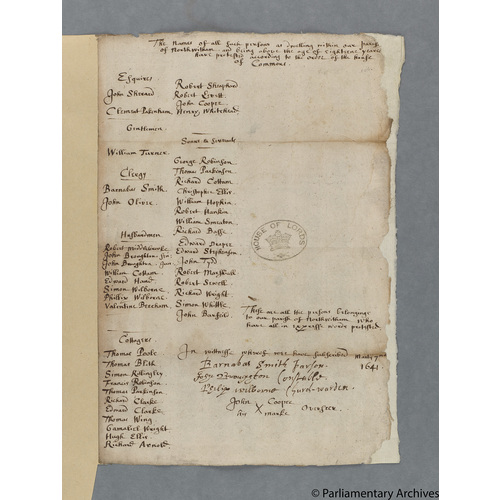 The Names of all such persons as dwelling within our parish
of Northwitham and being above the age of eighteene yeares
have protested according to the order of the House
of Commons
Esquires
John Sherard
Clement Pakenham
Gentlemen
William Turner
Clergy
Barnabas Smith
John Olivie
Husbandmen
John Boughton
John Boughton
William Cottam
Edward Hand
Simon Wilborne
Phillip Wilborne
Valentine Beecham
Cottagers
Thomas Poole
Thomas Blith
Simon
Francis Robinson
Thomas Parkinson
Richard Clarke
Edward Clarke
Thomas Wing
Gamaliel Wright
Hugh Ellis
Richard Arnold
Robert
Robert
John Cooper
Henry Whitehead
Sonns & Servants
George Robinson
Thomas Parkinson
Richard Cottam
Christopher Ellis
William Hopkin
Robert Hankin
William
Richard Basse
Edward
Edward Stephenson
John
Robert Marshall
Robert Sewell
Richard Wright
Simon Whittle
John
HOUSE OF LORDS
These are all the persons belonginge
to our parish of Northwitham who
have all in expresse words protested
In witnesse whereof wee have subscribed
1641
Barnabas Smith parson
John Boughton Constable
Philip Wilborne Church-warden
John Cooper
his X marke Overseer
© Parliamentary Archives